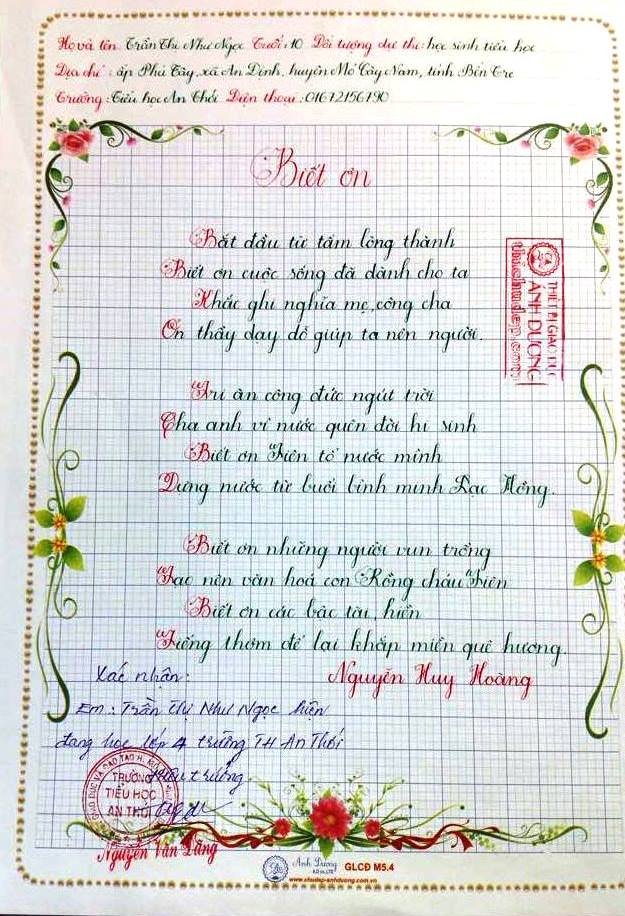 Họ và tên: Trần Thị Như Ngọc Tuổi: 10 Đối tượng dự thi: học sinh tiểu học
Địa chỉ: ấp Phú Tây, xã An Định, huyện Mỏ Cày Nam, tỉnh Bến Tre
Trường: Tiểu học An Thới Điện thoại: 01672156790
Biết ơn
Bắt đầu từ tấm lòng thành
Biết ơn cuộc sống đã dành cho ta
Khắc ghi nghĩa mẹ, công cha
Ơn thầy dạy dỗ giúp ta nên người.
THIẾT BỊ GIÁO DỤC
ÁNH DƯƠNG
Tri ân công đức ngút trời
Cha anh vì nước quên đời hi sinh
Biết ơn Tiên tổ nước mình
Dựng nước từ buổi bình minh Lạc Hồng.
Biết ơn những người vun trồng
Tạo nên văn hoá con Rồng cháu Tiên
Biết ơn các bậc tài, hiền
Tiếng thơm để lại khắp miền quê hương.
Nguyễn Huy Hoàng
Xác nhận:
Em: Trần Thị Như Ngọc hiện
đang học lớp 4 trường TH An Thới
Hiệu trưởng
TRƯỜNG
TIỂU HỌC
AN THỚI
Nguyễn Văn Dũng
Ánh Dương
GLCĐ M5.4
www.chudep-anhduong.com.vn